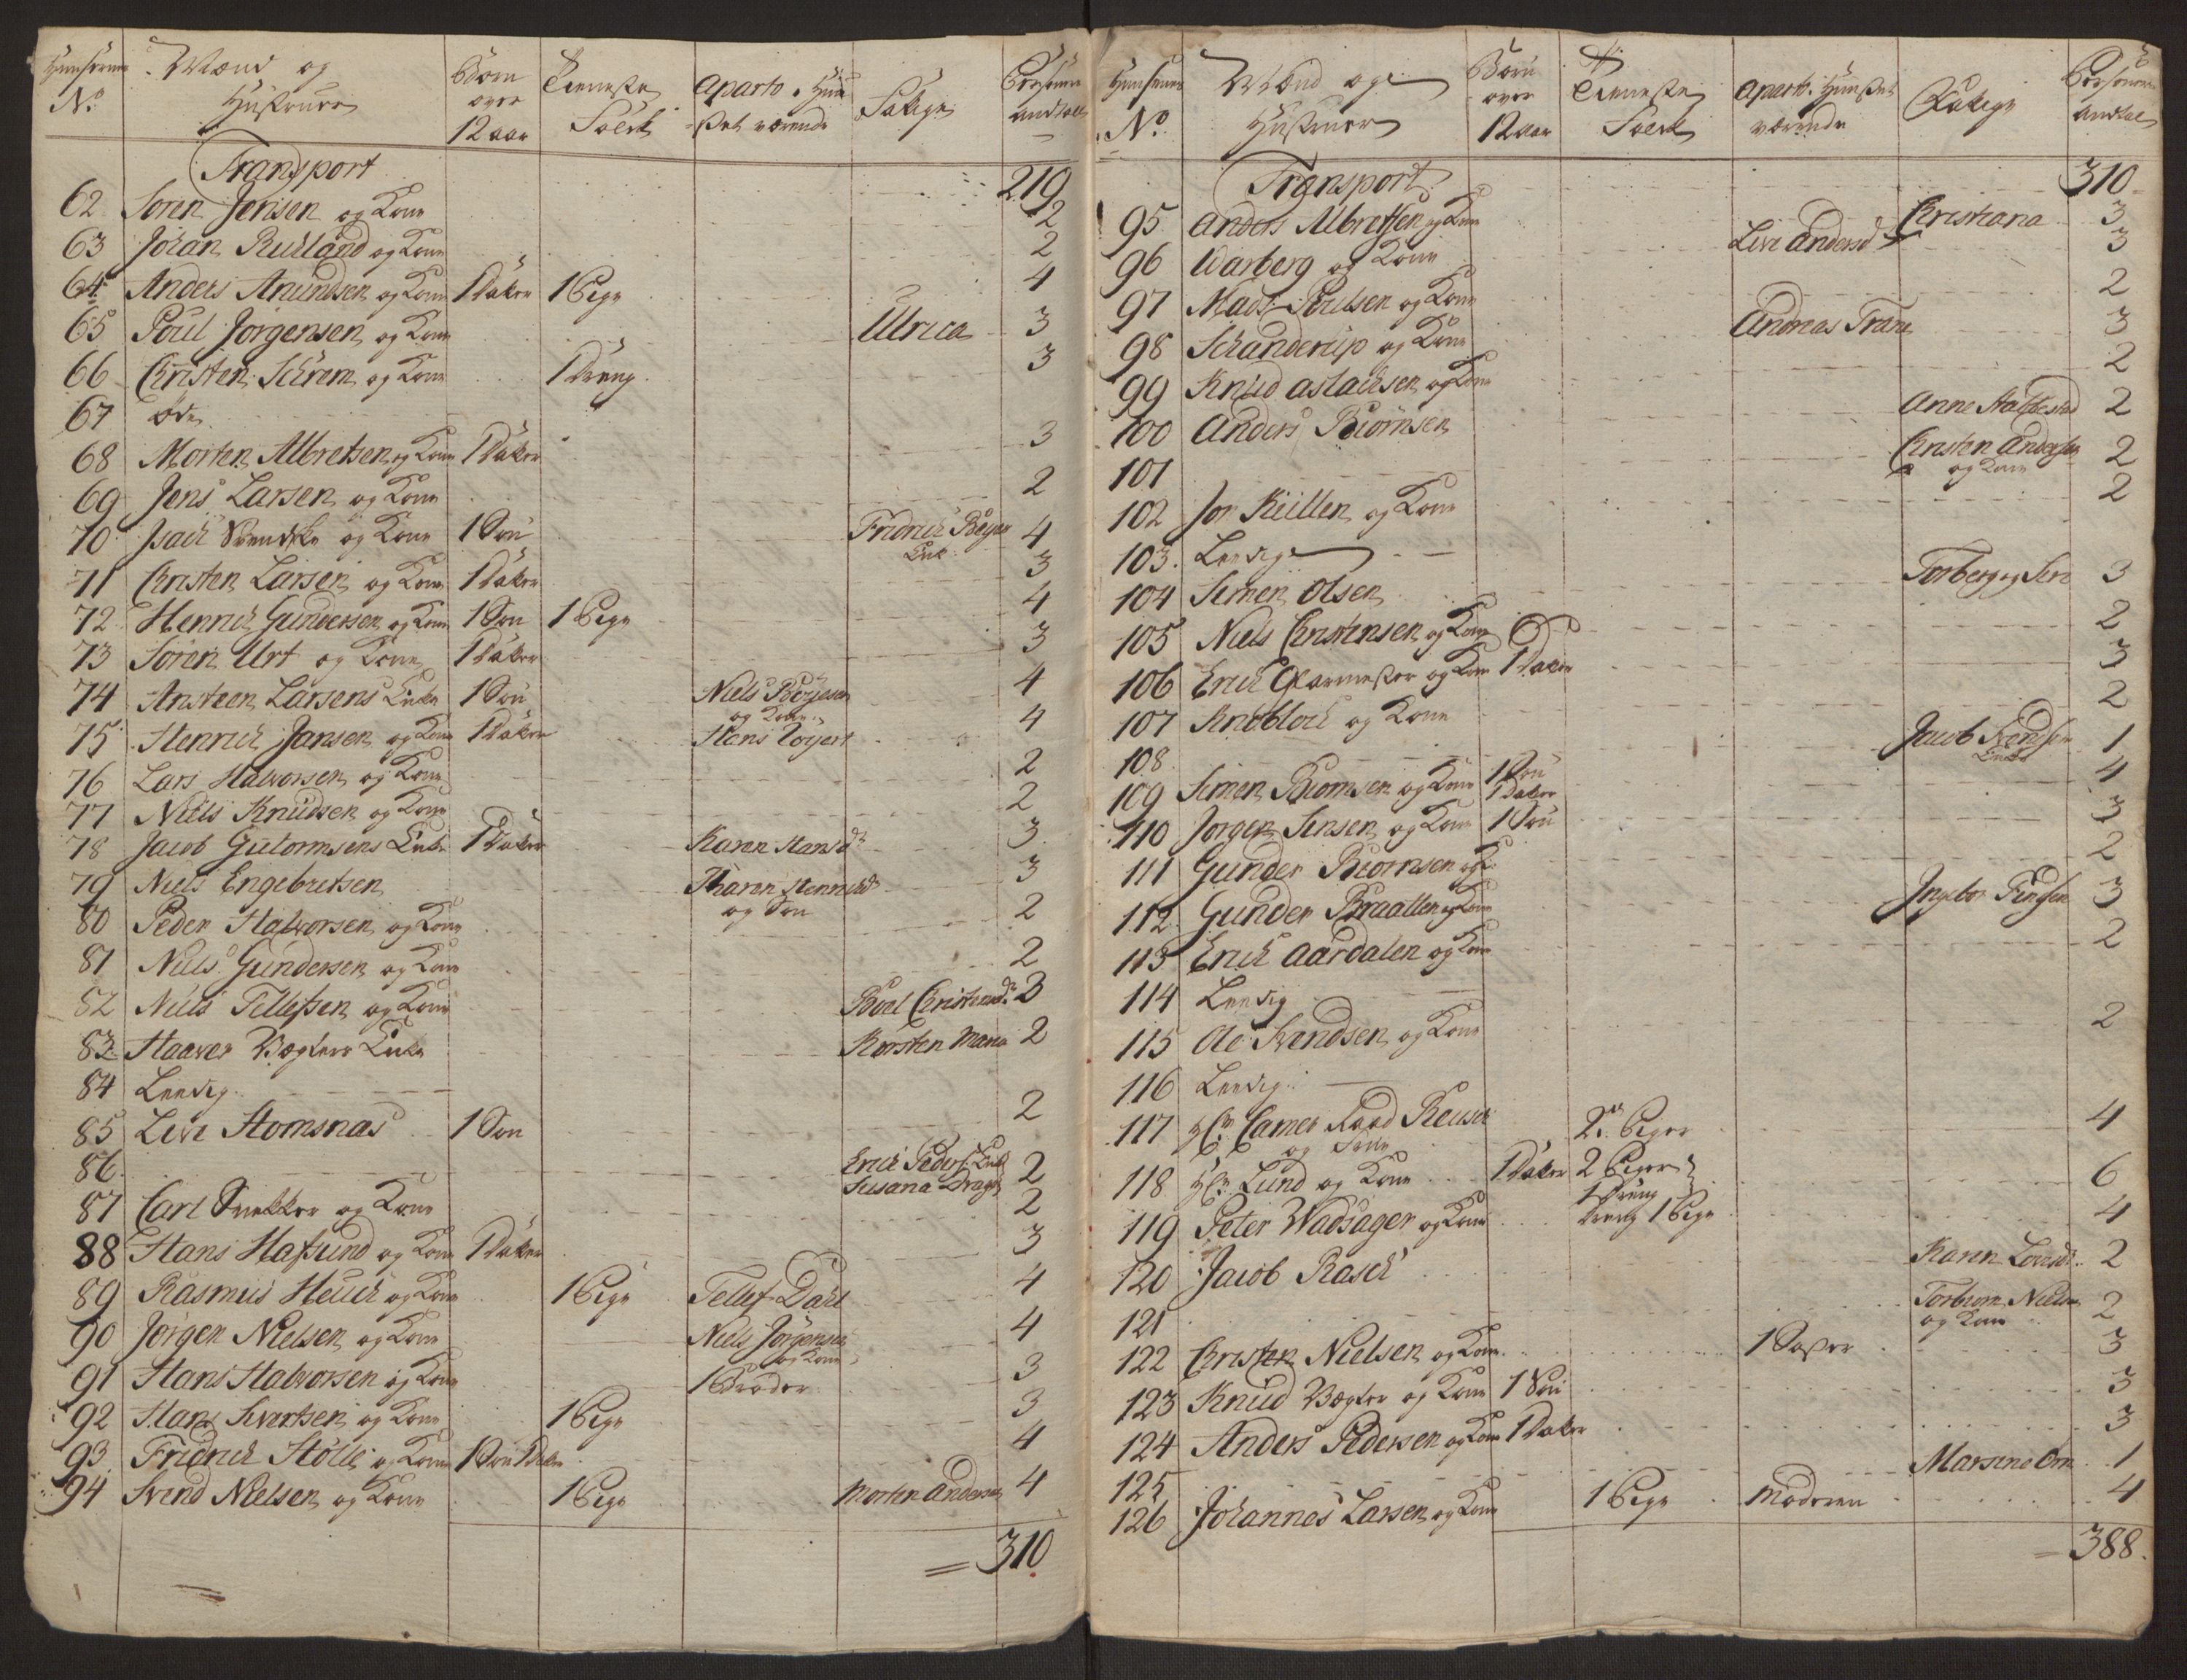 Huusernes Mænd og Børn Tieneste Aparte i Huu Fattige Persohners
No. Hustruer over 12 aar Folck set værende Andtall
Transport 219
62 Soren Jensen og Kone 2
63 Johan Ruhland og Kone 2
64 Anders Amundsen og Kone 1 Daater 1 Pige 4
65 Poul Jorgensen og Kone Ulrica 3
66 Christen Schrem og Kone 1 Dreng 3
67 øde
68 Morten Albretsen og Kone 1 Daater 3
69 Jens Larsen og Kone 2
70 Isach Svendske og Kone 1 Søn Fridrich Beyer Enke 4
71 Christen Larsen og Kone 1 Daater 3
72 Henrich Gundersen og Kone 1 Søn 1 Pige 4
73 Soren Urt og Kone 1 Daater 3
74 Ansteen Larsens Enke 1 Søn Niels Børjesen og Kone 4
75 Henrich Jansen og Kone 1 Daater Hans Toyert 4
76 Lars Halvorsen og Kone 2
77 Niels Knudsen og Kone 2
78 Jacob Gutormsens Enke 1 Daater Karen Hansdr 3
79 Niels Engebretsen Maren Henrichsdr og Søn 3
80 Peder Halvorsen og Kone 2
81 Niels Gundersen og Kone 2
82 Niels Tellefsen og Kone Boel Christensdr 3
83 Haaver Vægters Enke Kirsten Maria 2
84 Leedig
85 Live Stomsnas 1 Søn 2
86 Erich Peders. Enke Susana Dragon 2
87 Carl Snekker og Kone 2
88 Hans Hafsund og Kone 1 Daater 3
89 Rasmus Heuch og Kone 1 Pige Tellef Dahl 4
90 Jorgen Nielsen og Kone Niels Jorgensen og Kone 4
91 Hans Halvorsen og Kone 1 Broder 3
92 Hans Sivertsen og Kone 1 Pige 3
93 Fridrich Stolle og Kone 1 Søn 1 Dater 4
94 Svend Nielsen og Kone 1 Pige Morten Andersen 4
310
Huusernes Mænd og Børn Tieneste Apart i Huuset Fattige Persohners
No. Hustruer over 12 aar Folck værende Andtal
Transport 310
95 Anders Albretsen og Kone Christiana 3
96 Warberg og Kone Live Andersd 3
97 Mads Poulsen og Kone 2
98 Schanderup og Kone Andreas Trane 3
99 Knud Aslachsen og Kone 2
100 Anders Biørnsen Anne Halfvested 2
101 Christen Andersen og Kone 2
102 Jor Küllen og Kone 2
103 Leedig
104 Simen Olsen Torberg og Siri 3
105 Niels Christensen og Kone 2
106 Erich Glarmester og Kone 1 Dater 3
107 Knobloch og Kone 2
108 Jacob Svendsen Enke 1
109 Simen Biornsen og Kone 1 Søn 1 Dater 4
110 Jorgen Jensen og Kone 1 Søn 3
111 Gunder Biornsen og K: 2
112 Gunder Braatten og Kone Ingebor Finsen 3
113 Erich Aardalen og Kone 2
114 Leedig
115 Ole Svendsen og Kone 2
116 Leedig
117 Hr. Camer Raad Reusch og Frue 2de Piger 4
118 Hr. Lund og Kone 1 Dater 2 Piger 1 Dreng 6
119 Peter Wadsager og Kone Dreng 1 Pige 4
120 Jacob Rasch Karen Lorisdr 2
121 Torbiorn Nielsen og Kone 2
122 Christen Nielsen og Kone 1 Søster 3
123 Knud Vægter og Kone 1 Søn 3
124 Anders Pedersen og Kone 1 Dater 3
125 Marsene Orn 1
126 Johannes Larsen og Kone 1 Pige Moderen 4
388